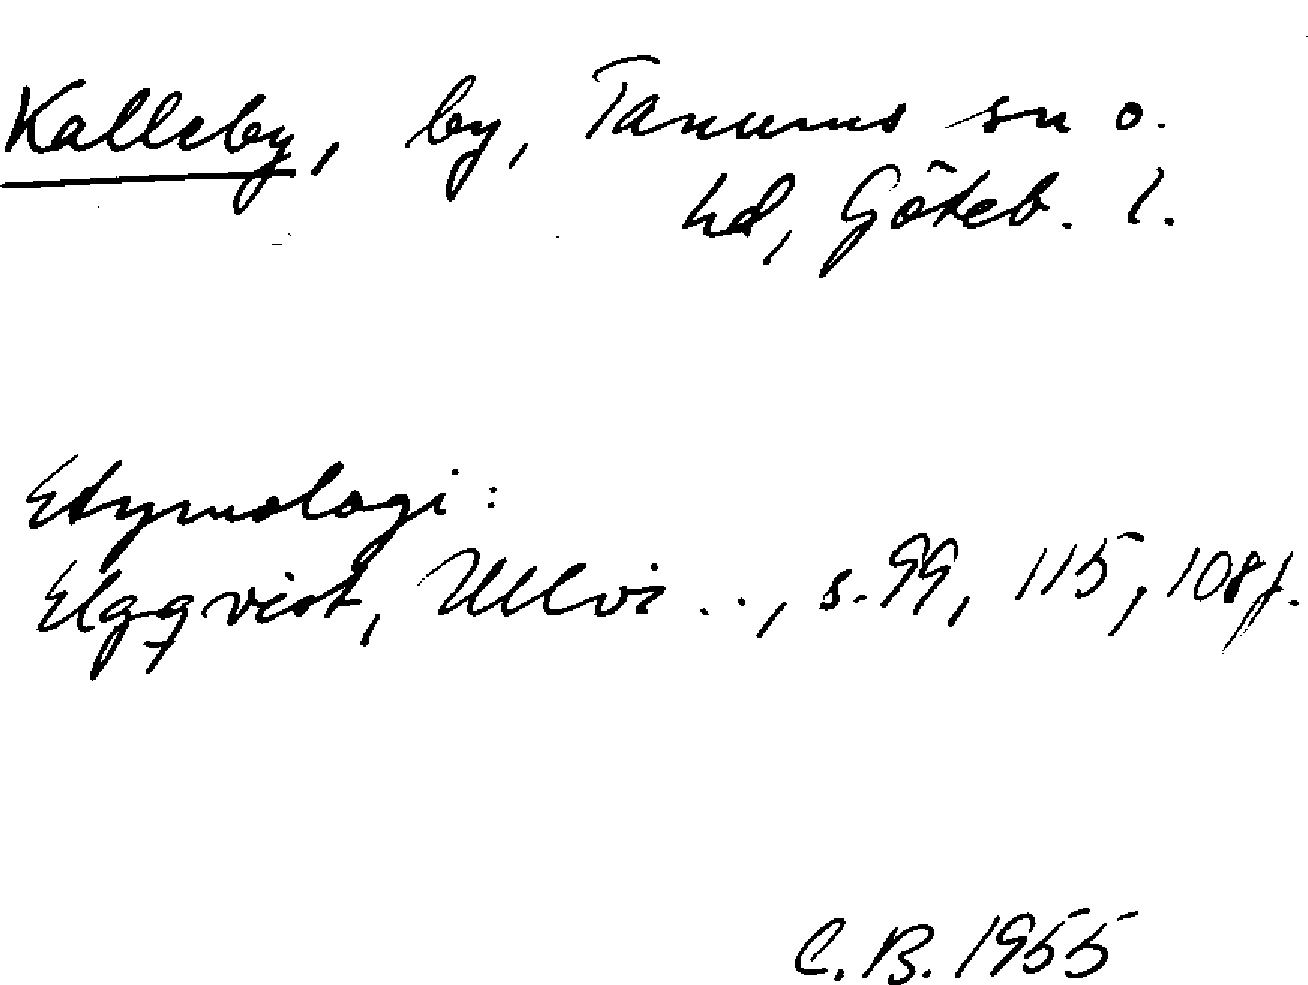 Kalleby, by, Tanums sn o.
hd, Göteb. l.
Etymologi:
Elgqvist, Ullvi.., s. 99, 115, 108f.
C.B. 1955